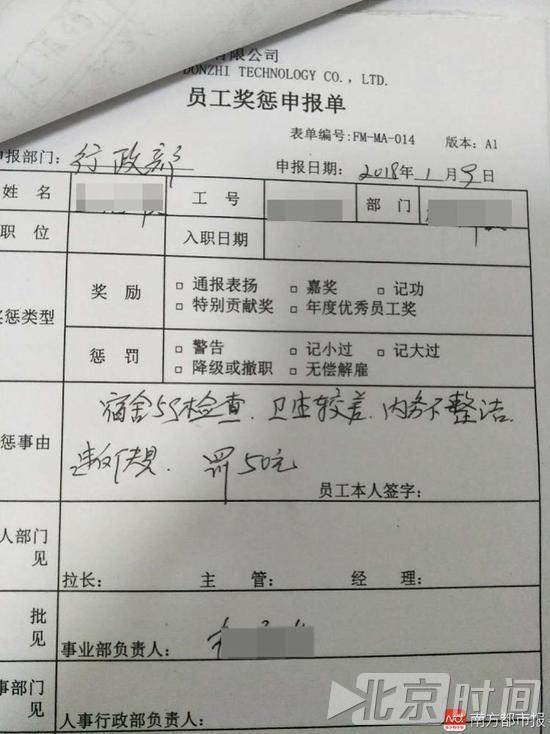 有限公司
DONZHI TECHNOLOGY CO., LTD.
员工奖惩申报单
表单编号:FM-MA-014 版本: A1
申报部门: 行政部 申报日期: 2018年1月9日
姓名 工号 部门
职位 入职日期
奖惩类型 奖励 □ 通报表扬 □ 嘉奖 □ 记功
□ 特别贡献奖 □ 年度优秀员工奖
惩罚 □ 警告 □ 记小过 □ 记大过
□ 降级或撤职 □ 无偿解雇
惩事由 宿舍5S检查、卫生较差、内务不整洁
罚50元
员工本人签字:
人部门
见
拉长: 主管: 经理:
批
见
事业部负责人:
事部门
见
人事行政部负责人:
北京时间
南方都市报